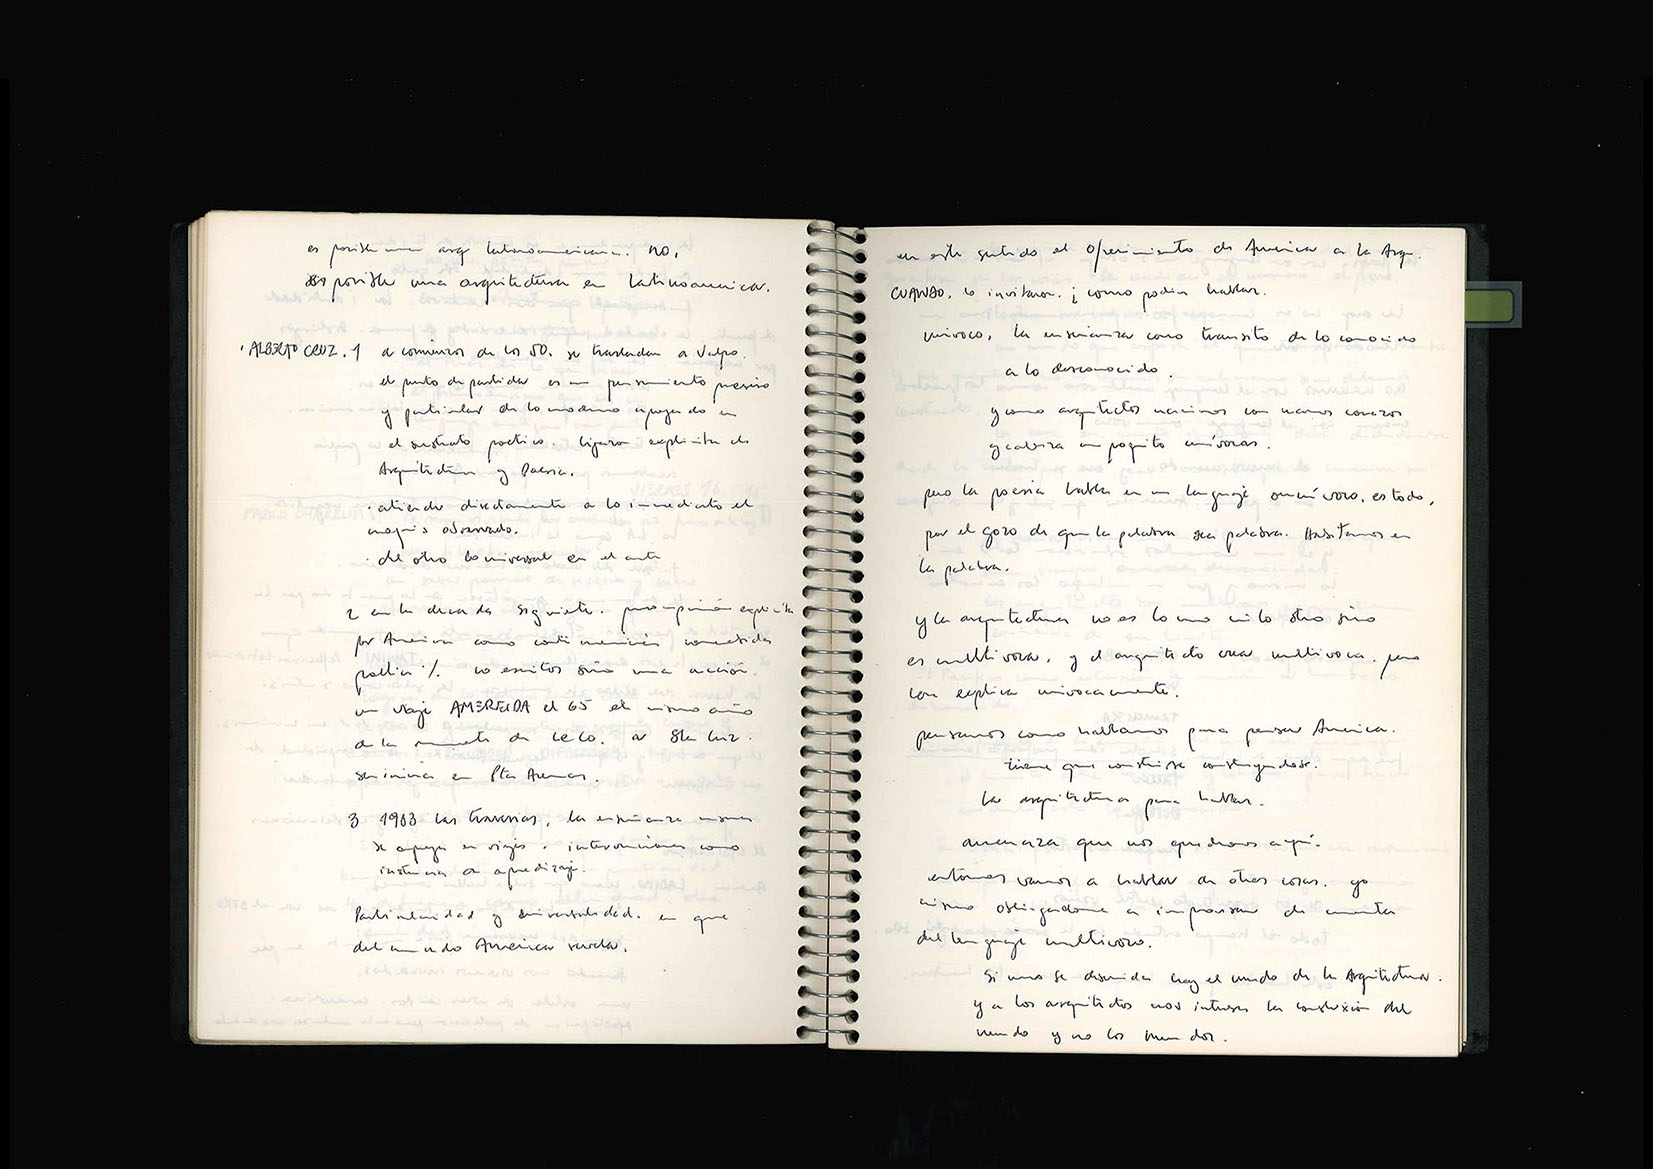 es posible una arq latinoamericana. NO,
es posible una arquitectura en latinoamerica.
· ALBERTO CRUZ. 1 a comienzos de los 50. se trasladan a Valpo.
el punto de partida es un pensamiento preciso
y particular de lo moderno apoyado en
el sustrato poético. ligazon explicita de
Arquitectura y Poesia.
· atiende directamente a lo inmediato el
croquis observado.
· del otro lo universal en el arte
2 en la decada siguiente. preocupación explicita
por America como
poetica %. no escritos sino una acción.
un viaje AMEREIDA el 65 el mismo año
de la muerte de LeCo. a Sta Cruz.
se inicia en Pta Arenas.
3 1983 las travesias, la enseñanza
se apoya en viajes e intervenciones como
instancia de aprendizaje.
Particularidad y universalidad. en que
del mundo America
en este sentido el Ofrecimiento de America a la Arqu.
CUANDO, lo invitaron. ¿ como podia hablar.
univoco, la enseñanza como transito de lo conocido
a lo desconocido.
y como arquitectos nacimos con manos corazon
y cabeza un poquito univocas.
pero la poesia habla en un lenguaje omnívoro, es todo,
por el gozo de que la palabra sea palabra. Habitamos en
la palabra.
y la arquitectura no es lo uno ni lo otro sino
es multivoca, y el arquitecto crea multivoca, pero
lo explica univocamente.
pensamos como hablamos para pensar America.
tiene que construirse construyendose.
la arquitectura para hablar.
amenaza que nos quedemos aquí.
entonces vamos a hablar de otras cosas. yo
mismo obligandome a improvisar de cuenta
del lenguaje multivoco.
Si uno se descuida hay el mundo de la Arquitectura.
y a los arquitectos nos interesa la construcción del
mundo y no los mundos.